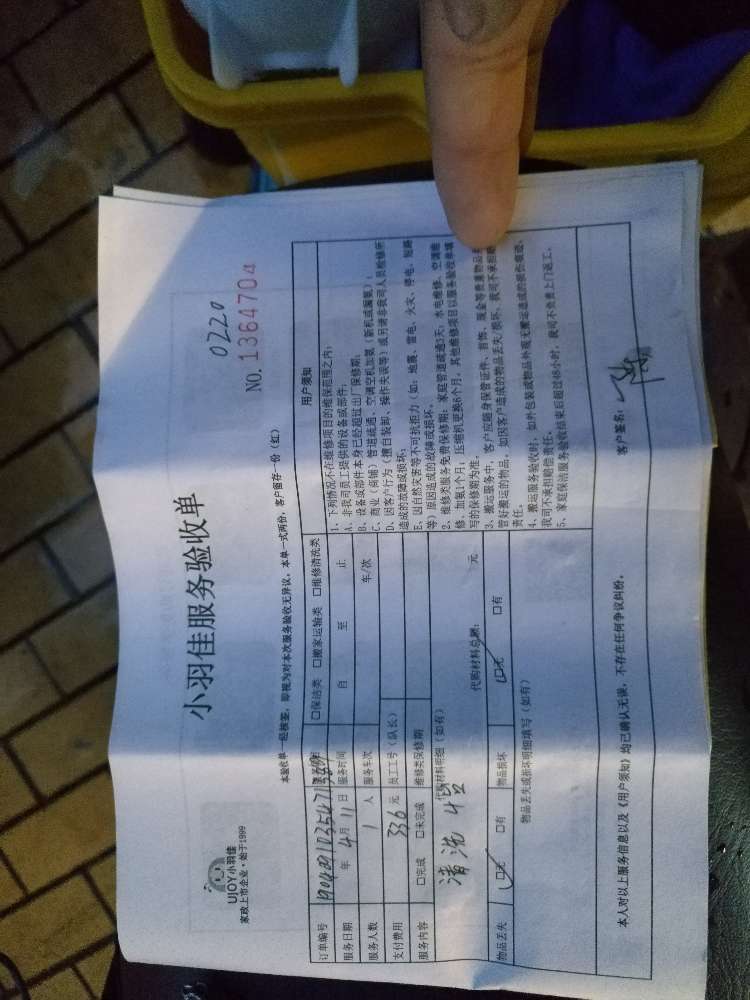 UJOY小羽佳
家政上市企业·始于1999
小羽佳服务验收单
0220
NO.1364704
本验收单一经核签，即视为对本次服务验收无异议，本单一式两份，客户留存一份（红）
订单编号
□保洁类 □搬家运输类 □维修清洗类
服务日期 年 4月11日 服务时间 自 至 止
服务人数 1 人 服务车次 车/次
支付费用 336 元 员工工号（队长）
服务内容 □完成 □未完成 维修类保修期
清洗
代购材料明细（如有） 代购材料总额： 元
物品丢失 □无 □有 物品损坏 □无 □有
物品丢失或损坏明细填写（如有）
用户须知
1、下列情况不在维修项目的维保范围之内：
A、非我司员工提供的设备或部件。
B、设备或部件本身已经超过出厂保修期。
C、商业（商铺）管道疏通、空调空机加氨（新机或漏氨）；
D、因客户行为（擅自装卸、操作失误等）或另请非我司人员检修所
造成的故障或损坏。
E、因自然灾害等不可抗拒力（如：地震、雷电、火灾、停电、短路
等）原因造成的故障或损坏。
2、维修类服务免费保修期：家庭管道疏通3天；水电维修、空调维
修、加氨1个月，压缩机更换6个月，其他维修项目以服务验收单填
写的保修期为准。
3、搬运服务中，客户应随身保管证件、首饰、现金等贵重物品
管好搬运的物品，如因客户造成的物品丢失、损坏，我司不承担
责任。
4、搬运服务验收时，如外包装或物品外观无搬运造成的损伤痕迹，
我司不承担赔偿责任。
5、家庭保洁服务验收结束后超过48小时，我司不免费上门返工。
本人对以上服务信息以及《用户须知》均已确认无误，不存在任何争议纠纷。
客户签名：